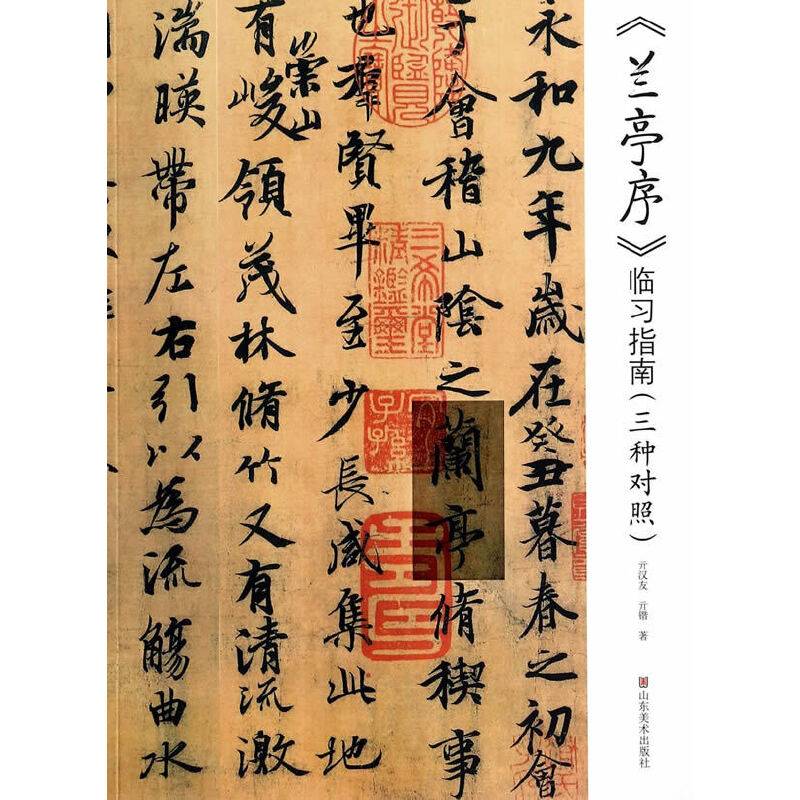 《兰亭序》临习指南(三种对照)
亓汉友 亓锴 著
山东美术出版社
永和九年歲在癸丑暮春之初會
于會稽山陰之蘭亭脩稧事
也羣賢畢至少長咸集此地
有崇山峻領茂林脩竹又有清流激
湍暎帶左右引以為流觴曲水